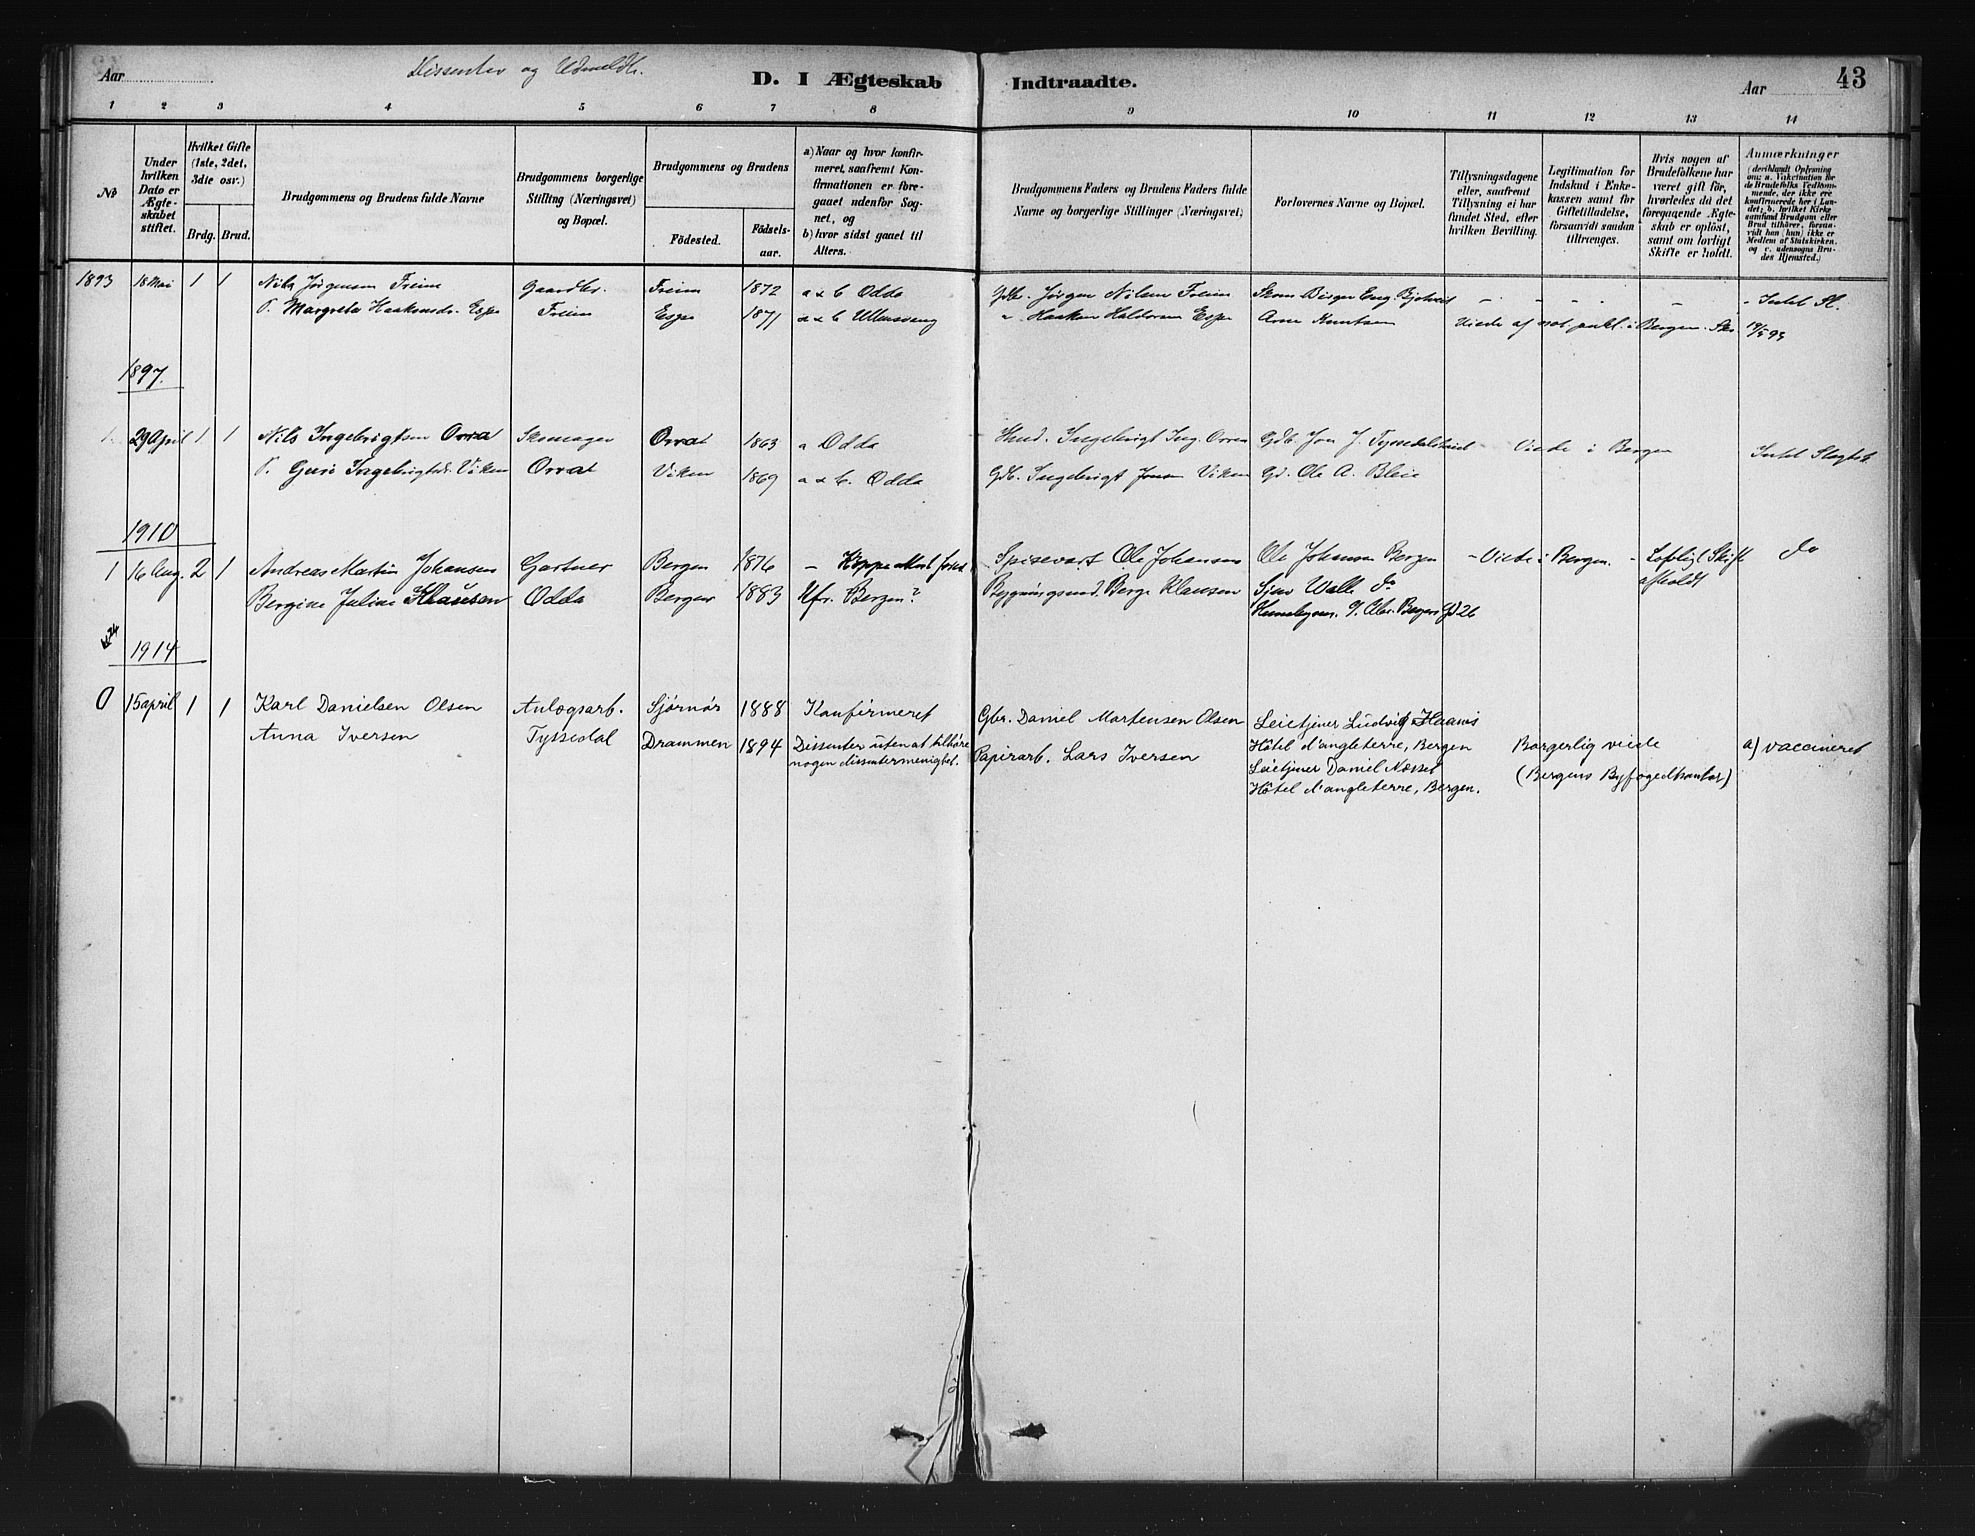 Aar
Dissenter og Udmeldte.
D. I Ægteskab
Indtraadte.
Aar
43
1 2 3 4 5 6 7 8 9 10 11 12 13 14
No
Under hvilken Dato er Ægteskabet stiftet.
Hvilket Gifte (1ste, 2det, 3die osv.)
Brdg. Brud.
Brudgommens og Brudens fulde Navne
Brudgommens borgerlige Stilling (Næringsvei) og Bopæl.
Brudgommens og Brudens
Födested.
Födselsaar.
a) Naar og hvor konfirmeret, saafremt Konfirmationen er foregaaet udenfor Sognet, og
b) hvor sidst gaaet til Alters.
Brudgommens Faders og Brudens Faders fulde Navne og borgerlige Stillinger (Næringsvei)
Forlovernes Navne og Bopæl.
Tillysningsdagene eller, saafremt Tillysning ei har fundet Sted, efter hvilken Bevilling.
Legitimation for Indskud i Enkekassen samt for Giftetilladelse, forsaavidt saadan tiltrænges.
Hvis nogen af Brudefolkene har været gift för, hvorledes da det foregaaende Ægteskab er oplöst, samt om lovligt Skifte er holdt.
Anmærkninger (deriblandt Oplysning om: a. Vakcination for de Brudefolks Vedkommende, der ikke ere konfirmerede her i Landet; b. hvilket Kirkesamfund Brudgom eller Brud tilhörer, forsaavidt han (hun) ikke er Medlem af Statskirken. og c. udensogns Brudes Hjemsted.)
1893 18 Mai 1 1 Nils Jørgensen Freim Gaardbr. Freim 1872 a & b Odda Gdbr. Jørgen Nilsen Freim
P. Margreta Haakonsdr. Espe Freim Espe 1871 a & b Ullensvang " Haakon Haldorsen Espe Arne Knutsen Viede af not. publ. i Bergen.
1897.
1. 29 April 1 1 Nils Ingebrigtsen Orra Skomager Orra 1863 a Odda Gdb. Jon J. Tyssedalstveit Viede i Bergen
P. Guri Ingebrigtsdr. Viken Viken 1869 a & b. Odda Gdb. Ingebrigt Jonsen Viken Gd. Ole A. Bleie
1910
1 16 Aug. 2 1 Andreas Martin Johansen Gartner Bergen 1876 Spisevært Ole Johansen Ole Johansen Bergen - Viede i Bergen. - Lovligt Skifte
Bergine Juline Klausen Odda Bergen 1883 Ufr. Bergen? Bygningssnd. Berge Klausen Sjur Walle do afholdt
1914
0 15 april 1 1 Karl Danielsen Olsen Anlægsarb. Sjørnør 1888 Konfirmeret Gbr. Daniel Martensen Olsen Leietjener Ludvig Haavis
Anna Iversen Tyssedal Drammen 1894 Dissenter uten at tilhøre Papirarb. Lars Iversen Hôtel d'angleterre, Bergen Borgerlig viede a) vaccineret
nogen dissentermenighet. Leietjener Daniel Næsset (Bergens Byfogedkontor)
Hôtel d'angleterre, Bergen.